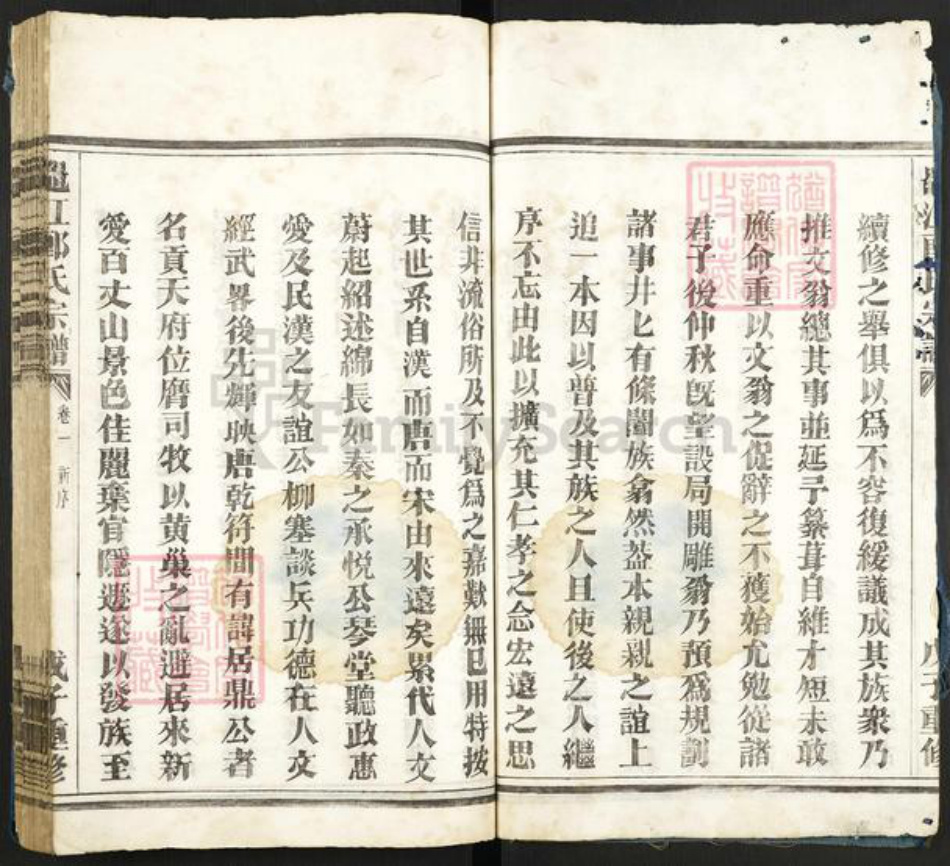 續修之舉俱以爲不容復緩議成其族衆乃
推文翁總其事並延予纂葺自維才短未敢
應命重以文翁之促辭之不獲始允勉從諸
君子後仲秋旣望設局開雕翁乃預爲規劃
諸事井乜有條闔族翕然葢本親親之誼上
追一本因以普及其族之人且使後之人繼
序不忘由此以擴充其仁孝之念宏遠之思
信非流俗所及不覺爲之嘉歎無已用特按
其世系自漢而唐而宋由來遠矣累代人文
蔚起紹述綿長如秦之承悦公琴堂聽政惠
愛及民漢之友誼公柳塞談兵功德在人文
經武畧後先輝映唐乾符間有諱居鼎公者
名貢天府位膺司牧以黄巢之亂避居來新
愛百丈山景色佳麗棄官隱遯遂以發族至
江鄒氏宗譜
卷一
新序
戊子重修
戊子重修
FamilySearch